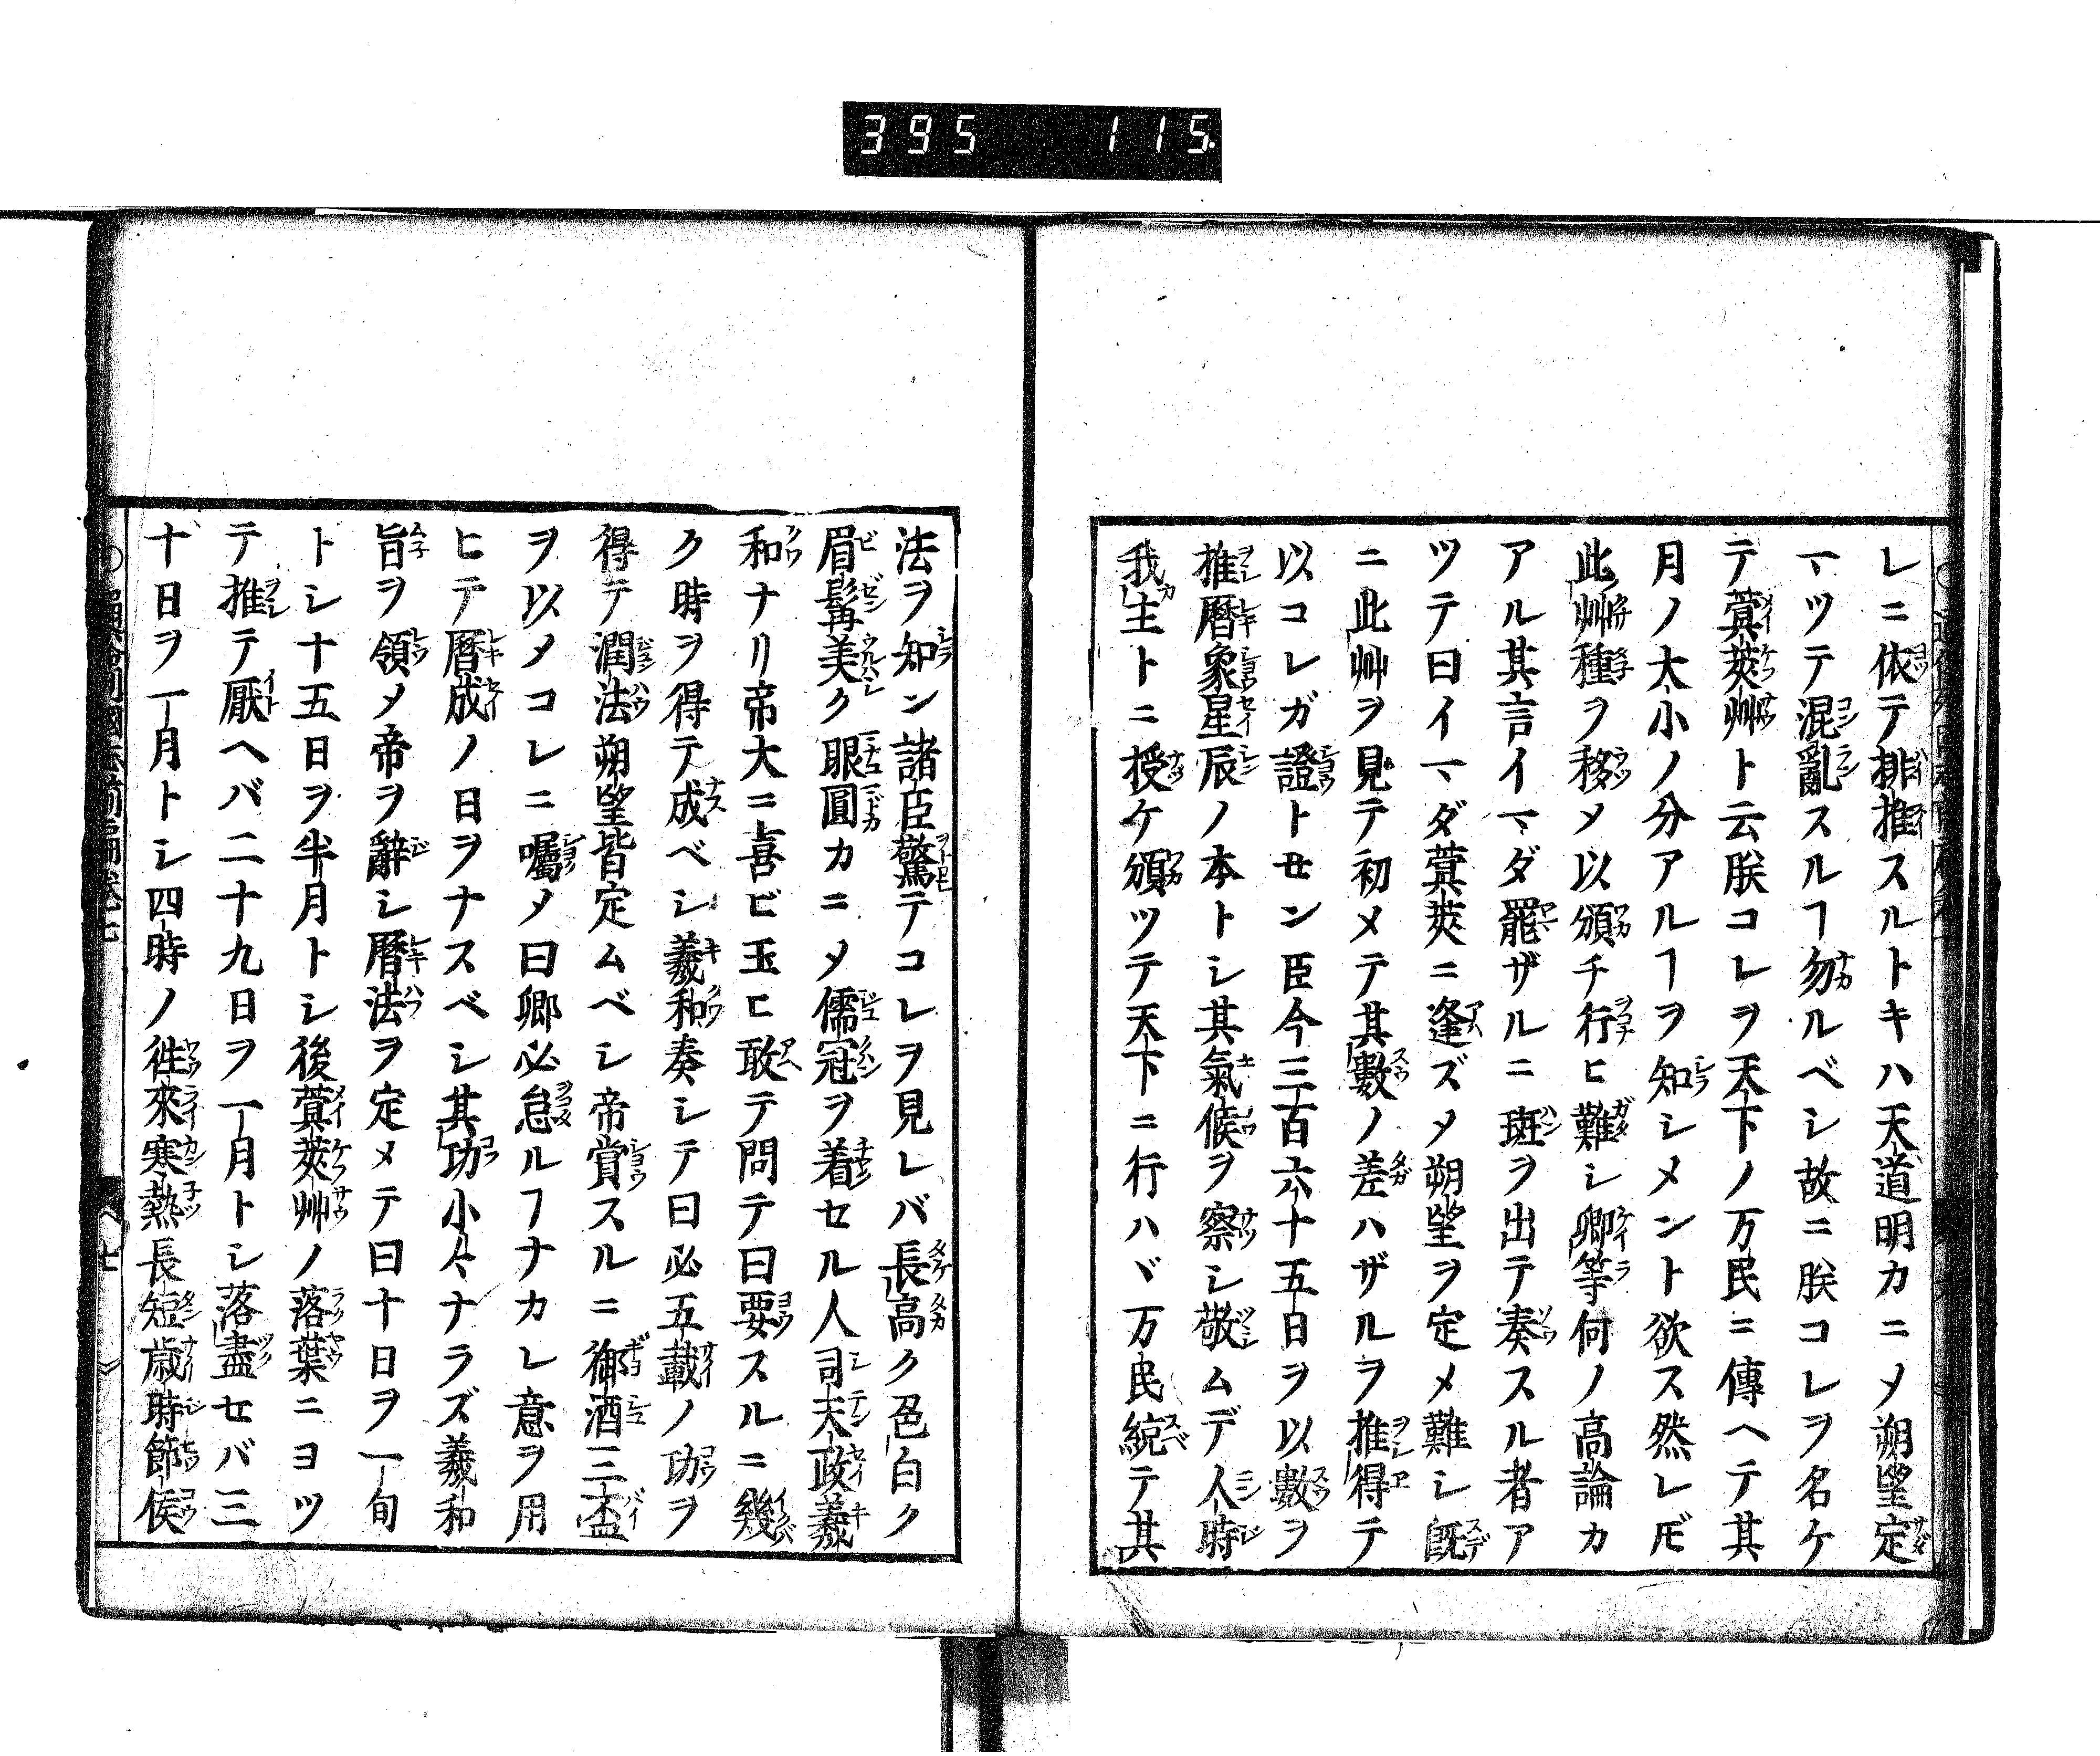 395 115
レニ依テ排推スルトキハ天道明カニメ朔望定
マツテ混亂スルヿ勿ルベシ故ニ朕コレヲ名ケ
テ蓂莢艸ト云朕コレヲ天下ノ万民ニ傳ヘテ其
月ノ大小ノ分アルヿヲ知シメント欲ス然レ𪜈
此艸種ヲ移メ以頒チ行ヒ難シ卿等何ノ高論カ
アル其言イマダ罷ザルニ班ヲ出テ奏スル者ア
ツテ曰イマダ蓂莢ニ逢ズメ朔望ヲ定メ難シ既
ニ此艸ヲ見テ初メテ其數ノ差ハザルヲ推得テ
以コレガ證トセン臣今三百六十五日ヲ以數ヲ
推曆象星辰ノ本トシ其氣候ヲ察シ敬ムデ人時
我主トニ授ケ頒ツテ天下ニ行ハヾ万民統テ其
法ヲ知ン諸臣驚テコレヲ見レバ長高ク色白ク
眉髯美ク眼圓カニメ儒冠ヲ着セル人司天政羲
和ナリ帝大ニ喜ビ玉ヒ敢テ問テ曰要スルニ幾
ク時ヲ得テ成ベシ羲和奏シテ曰必五載ノ功ヲ
得テ潤法朔望皆定ムベシ帝賞スルニ御酒三盃
ヲ以メコレニ囑メ曰卿必怠ルヿナカレ意ヲ用
ヒテ曆成ノ日ヲナスベシ其功小々ナラズ羲和
旨ヲ領メ帝ヲ辭シ曆法ヲ定メテ曰十日ヲ一旬
トシ十五日ヲ半月トシ後蓂莢艸ノ落葉ニヨツ
テ推テ厭ヘバ二十九日ヲ一月トシ落盡セバ三
十日ヲ一月トシ四時ノ徃來寒熱長短歳時節候